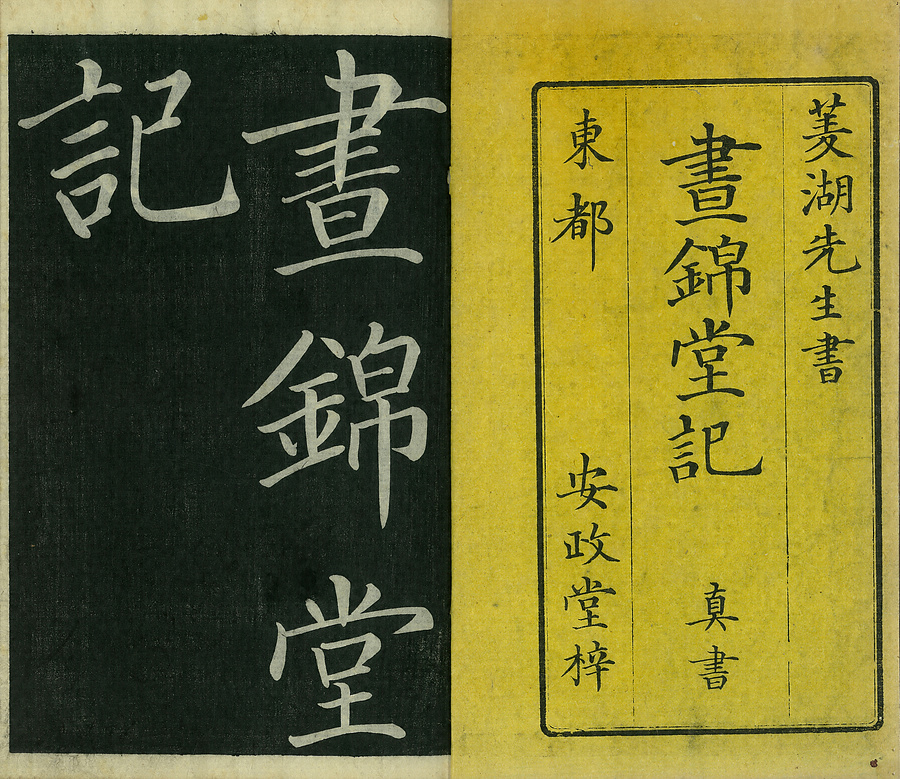 菱湖先生書
晝錦堂記 真書
東都 安政堂梓
晝錦堂
記